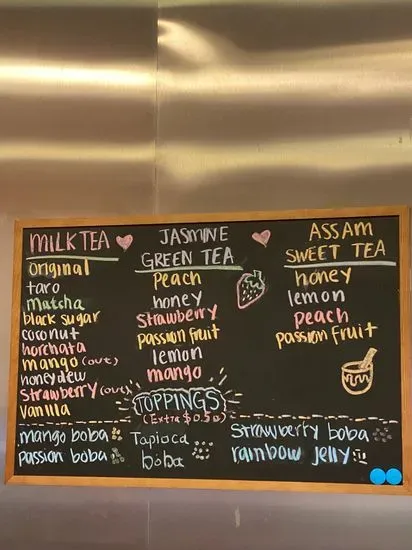 MILK TEA
original
taro
Matcha
black sugar
coconut
horchata
mango (out)
honeydew
strawberry (out)
Vanilla
JASMINE
GREEN TEA
Peach
honey
Strawberry
passion fruit
lemon
mango
ASSAM
SWEET TEA
honey
lemon
peach
passion fruit
TOPPINGS
(Extra $0.50)
mango boba
passion boba
Tapioca
boba
Strawberry boba
rainbow jelly